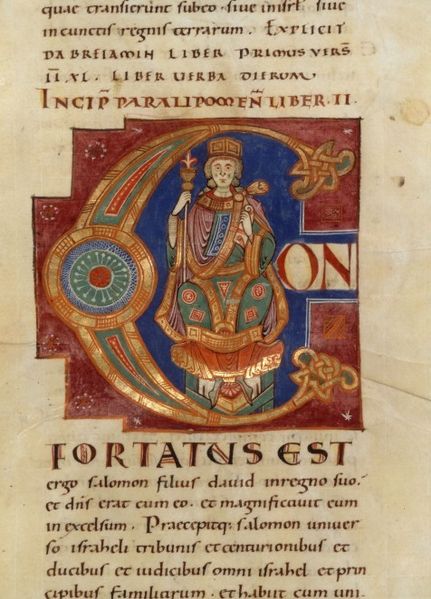 quae transierunt subeo · siue inisrł siue
in cunctis regnis terrarum · EXPLICIT
DABREIAMIN LIBER PRIMUS VERS̄
ĪĪ. XL. LIBER UERBA DIERUM
INCIP̄ PARALIPOMEN̄ LIBER · II ·
CON
FORTATUS EST
ergo salomon filius dauid inregno suo ·
et dn̄s erat cum eo · et magnificauit eum
in excelsum · Praecepitq; salomon uniuer
so israheli tribunis et centurionibus et
ducibus et iudicibus omni israhel et prin
cipibus familiarum · et habiit cum uni